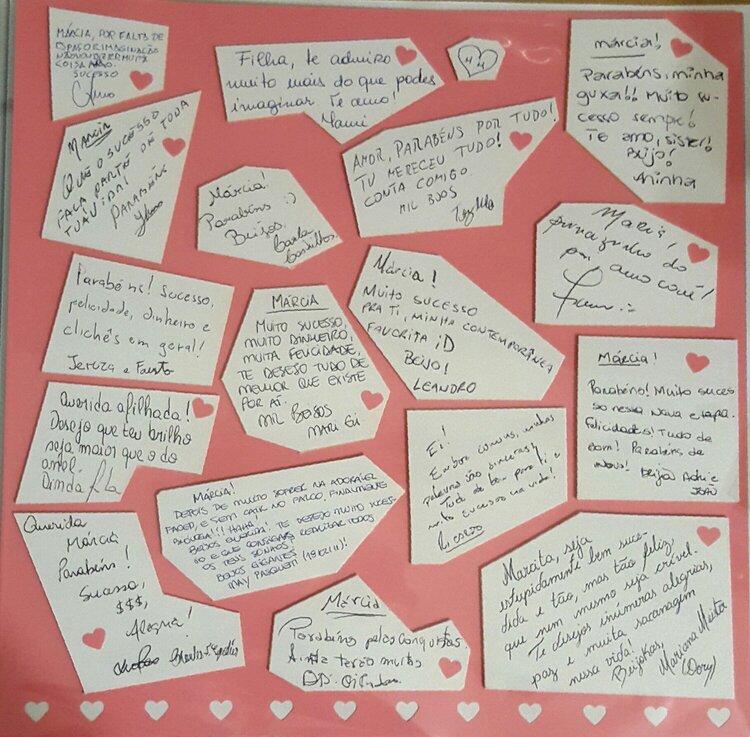 MÁRCIA, POR FALTA DE
ESPAÇO E IMAGINAÇÃO
NÃO VOU DIZER MUITA
COISA
SUCESSO
Filha, te admiro
muito mais do que podes
imaginar. Te amo!
Mami
44
márcia!
Parabéns, minha
guxa!! Muito su-
cesso sempre!
Te amo, sister!
Beijo!
Aninha
MÁRCIA
QUE O SUCESSO
FAÇA PARTE DE TODA
TUA VIDA!
PARABÉNS
AMOR, PARABÉNS POR TUDO!
TU MERECEU TUDO!
CONTA COMIGO
MIL BJOS
Márcia!
Parabéns :)
Beijos.
Carla
Márcia!
do
amo você!
Parabéns! Sucesso,
felicidade, dinheiro e
clichês em geral!
Jeruza e Fausto
MÁRCIA
MUITO SUCESSO,
MUITO DINHEIRO,
MUITA FELICIDADE,
TE DESEJO TUDO DE
MELHOR QUE EXISTE
POR AÍ.
MIL BEIJOS
MARI GI
Márcia!
MUITO SUCESSO
PRA TI, MINHA CONTEMPORÂNEA
FAVORITA ;D
BEIJO!
LEANDRO
Márcia!
Parabéns! Muito suces
so nessa nova etapa.
Felicidades! Tudo de
bom! Parabéns de
novo! Beijo
JOÃO
Querida afilhada!
Desejo que teu brilho
seja maior que o do
anel.
Dinda
Ei!
Embora comuns, minhas
palavras são sinceras!
Tudo de bom para ti e
muito sucesso na vida!
Ricardo
MÁRCIA!
DEPOIS DE MUITO SOFRER NA ADORÁVEL
FACED, E SEM CAIR NO PALCO, FINALMENTE
PSICÓLOGA!!! HAHA!
BEIJOS QUERIDA! TE DESEJO MUITO SUCES-
SO E QUE CONSIGAS REALIZAR TODOS
OS TEUS SONHOS!
BEIJOS GIGANTES
MAY PASQUETTI
Querida
Márcia
Parabéns!
Sucesso,
$$$,
Alegria!
Márcia
Parabéns pelas conquistas.
Ainda terão muitas
Marcita, seja
estupidamente bem suce-
dida e tão, mas tão feliz,
que nem mesmo seja crível.
Te desejo inúmeras alegrias,
paz e muita sacanagem
nessa vida!
Beijokas,
Mariana Meirta
(Dory)